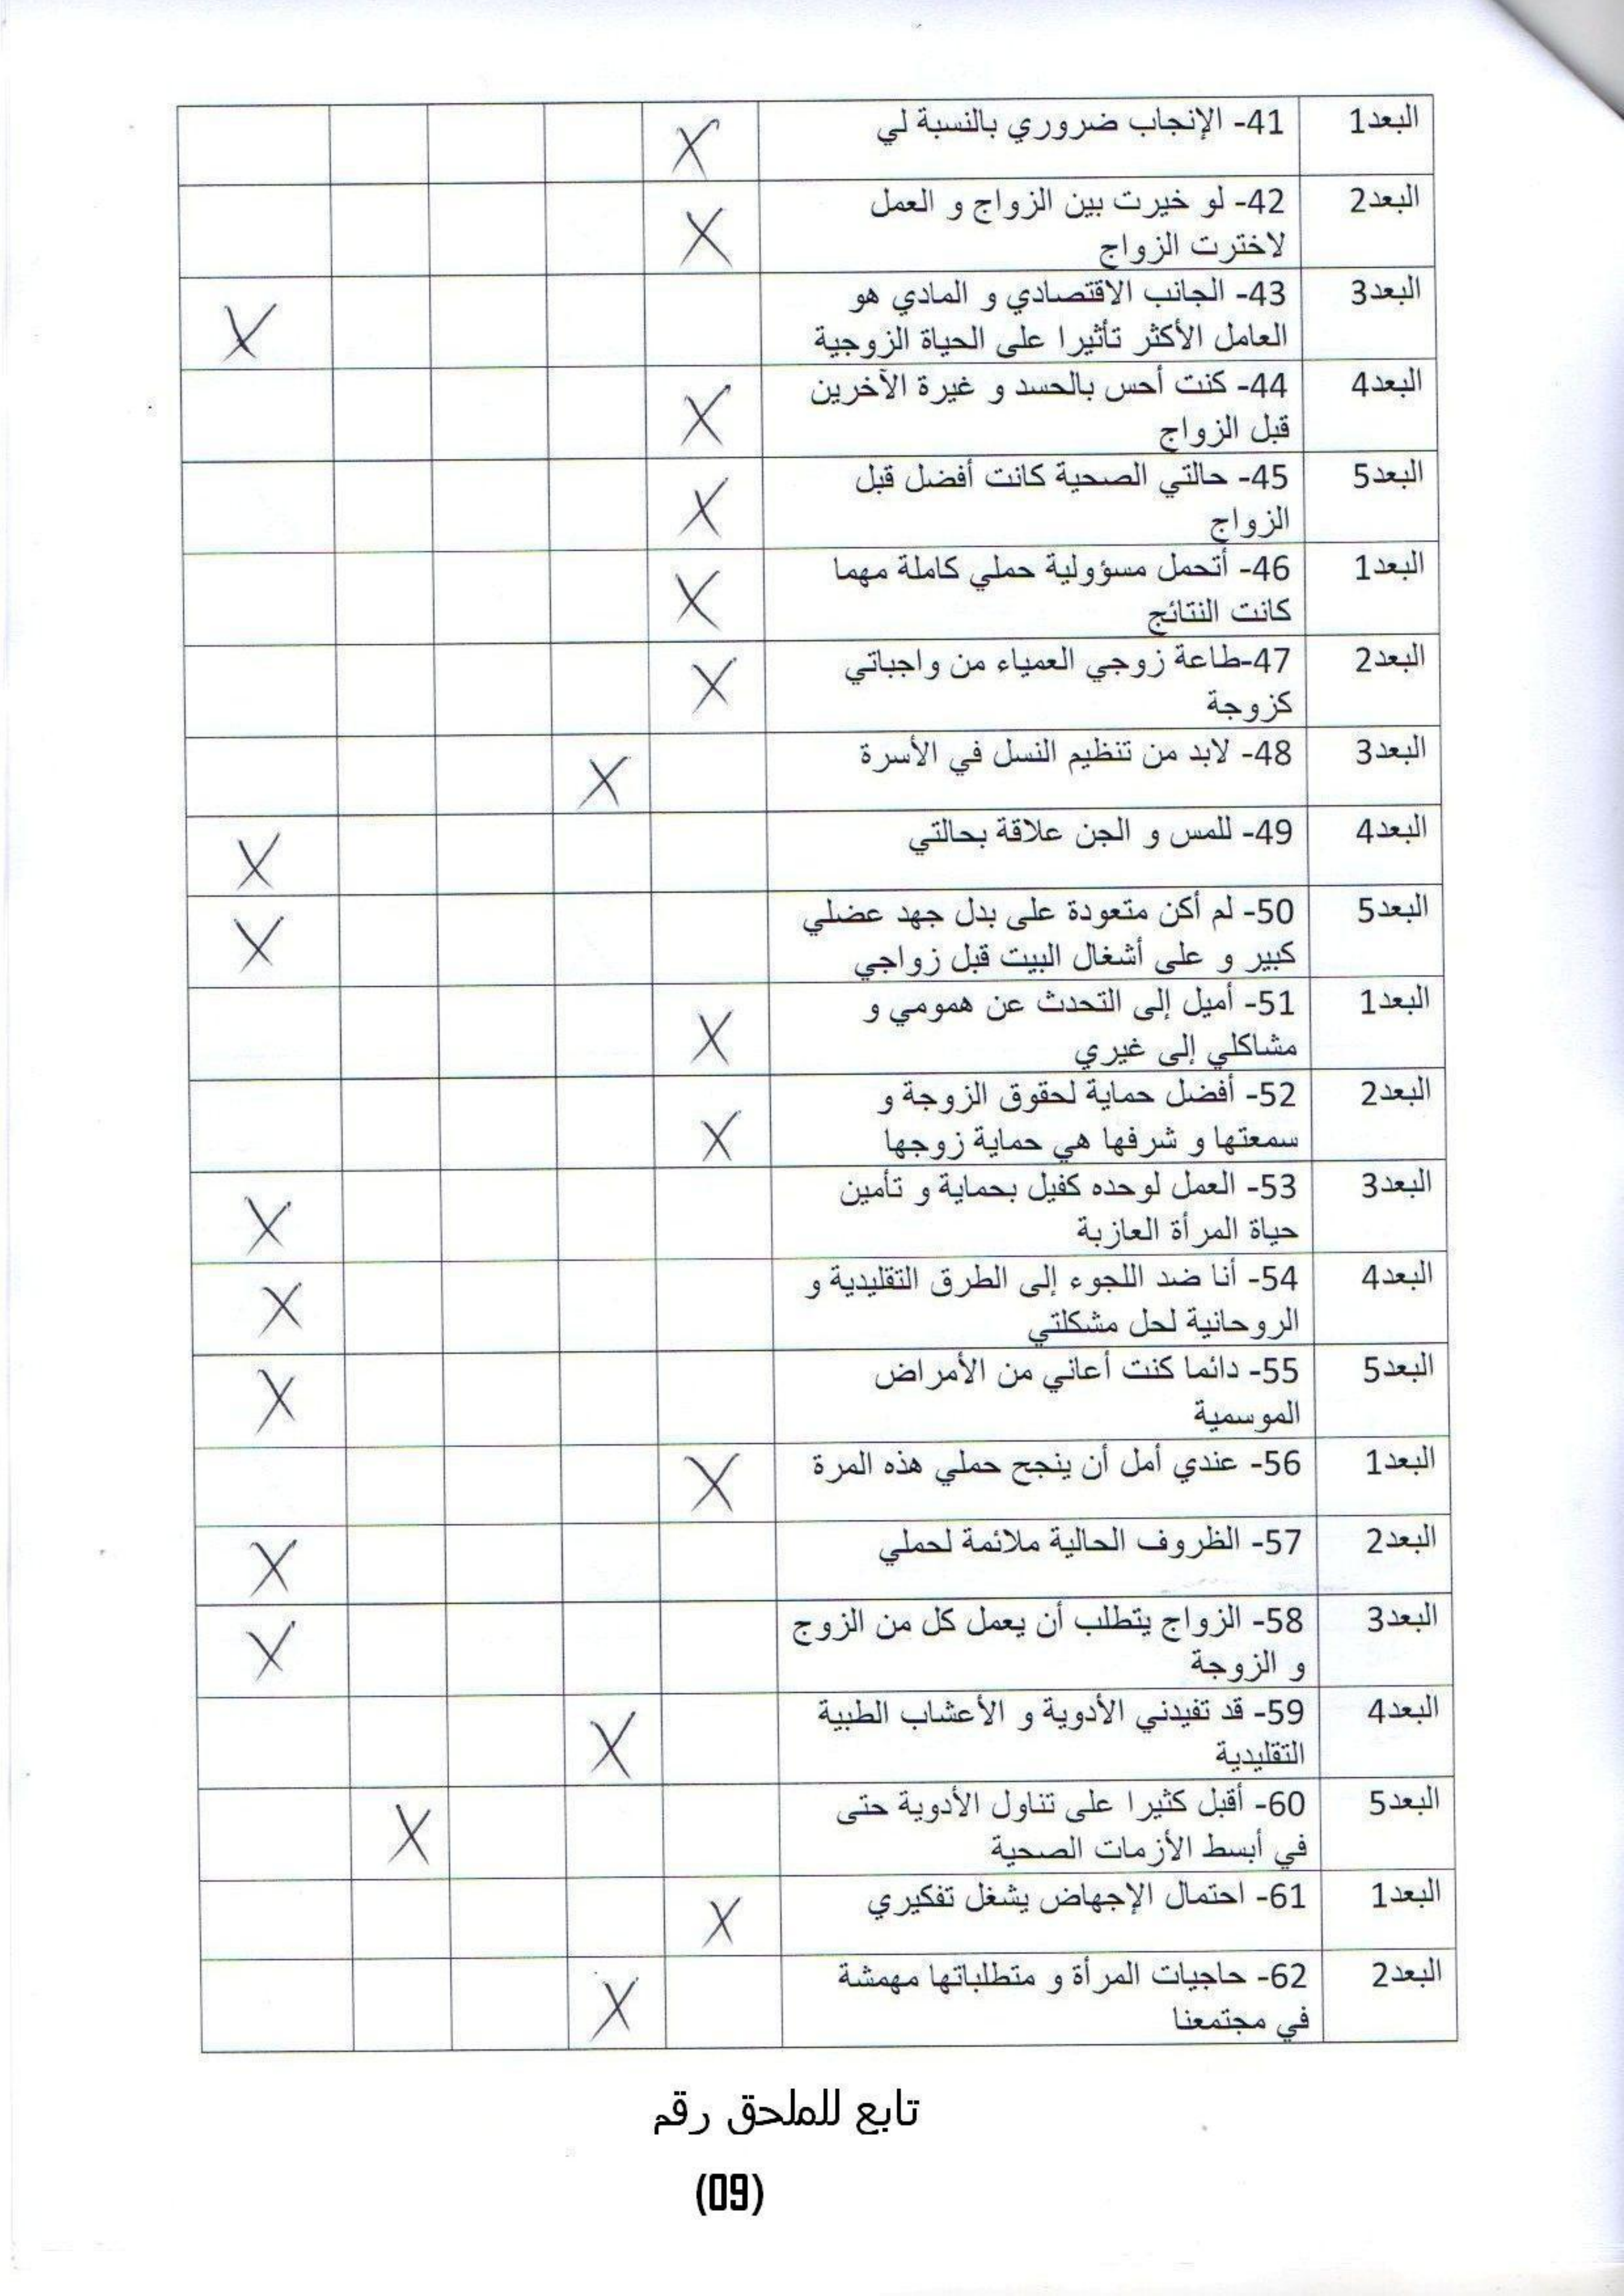 البعد1 41- الإنجاب ضروري بالنسبة لي X
البعد2 42- لو خيرت بين الزواج و العمل X
لاخترت الزواج
البعد3 43- الجانب الاقتصادي و المادي هو X
العامل الأكثر تأثيرا على الحياة الزوجية
البعد4 44- كنت أحس بالحسد و غيرة الآخرين X
قبل الزواج
البعد5 45- حالتي الصحية كانت أفضل قبل X
الزواج
البعد1 46- أتحمل مسؤولية حملي كاملة مهما X
كانت النتائج
البعد2 47-طاعة زوجي العمياء من واجباتي X
كزوجة
البعد3 48- لابد من تنظيم النسل في الأسرة X
البعد4 49- للمس و الجن علاقة بحالتي X
البعد5 50- لم أكن متعودة على بدل جهد عضلي X
كبير و على أشغال البيت قبل زواجي
البعد1 51- أميل إلى التحدث عن همومي و X
مشاكلي إلى غيري
البعد2 52- أفضل حماية لحقوق الزوجة و X
سمعتها و شرفها هي حماية زوجها
البعد3 53- العمل لوحده كفيل بحماية و تأمين X
حياة المرأة العازبة
البعد4 54- أنا ضد اللجوء إلى الطرق التقليدية و X
الروحانية لحل مشكلتي
البعد5 55- دائما كنت أعاني من الأمراض X
الموسمية
البعد1 56- عندي أمل أن ينجح حملي هذه المرة X
البعد2 57- الظروف الحالية ملائمة لحملي X
البعد3 58- الزواج يتطلب أن يعمل كل من الزوج X
و الزوجة
البعد4 59- قد تفيدني الأدوية و الأعشاب الطبية X
التقليدية
البعد5 60- أقبل كثيرا على تناول الأدوية حتى X
في أبسط الأزمات الصحية
البعد1 61- احتمال الإجهاض يشغل تفكيري X
البعد2 62- حاجيات المرأة و متطلباتها مهمشة X
في مجتمعنا
تابع للملحق رقم
(09)